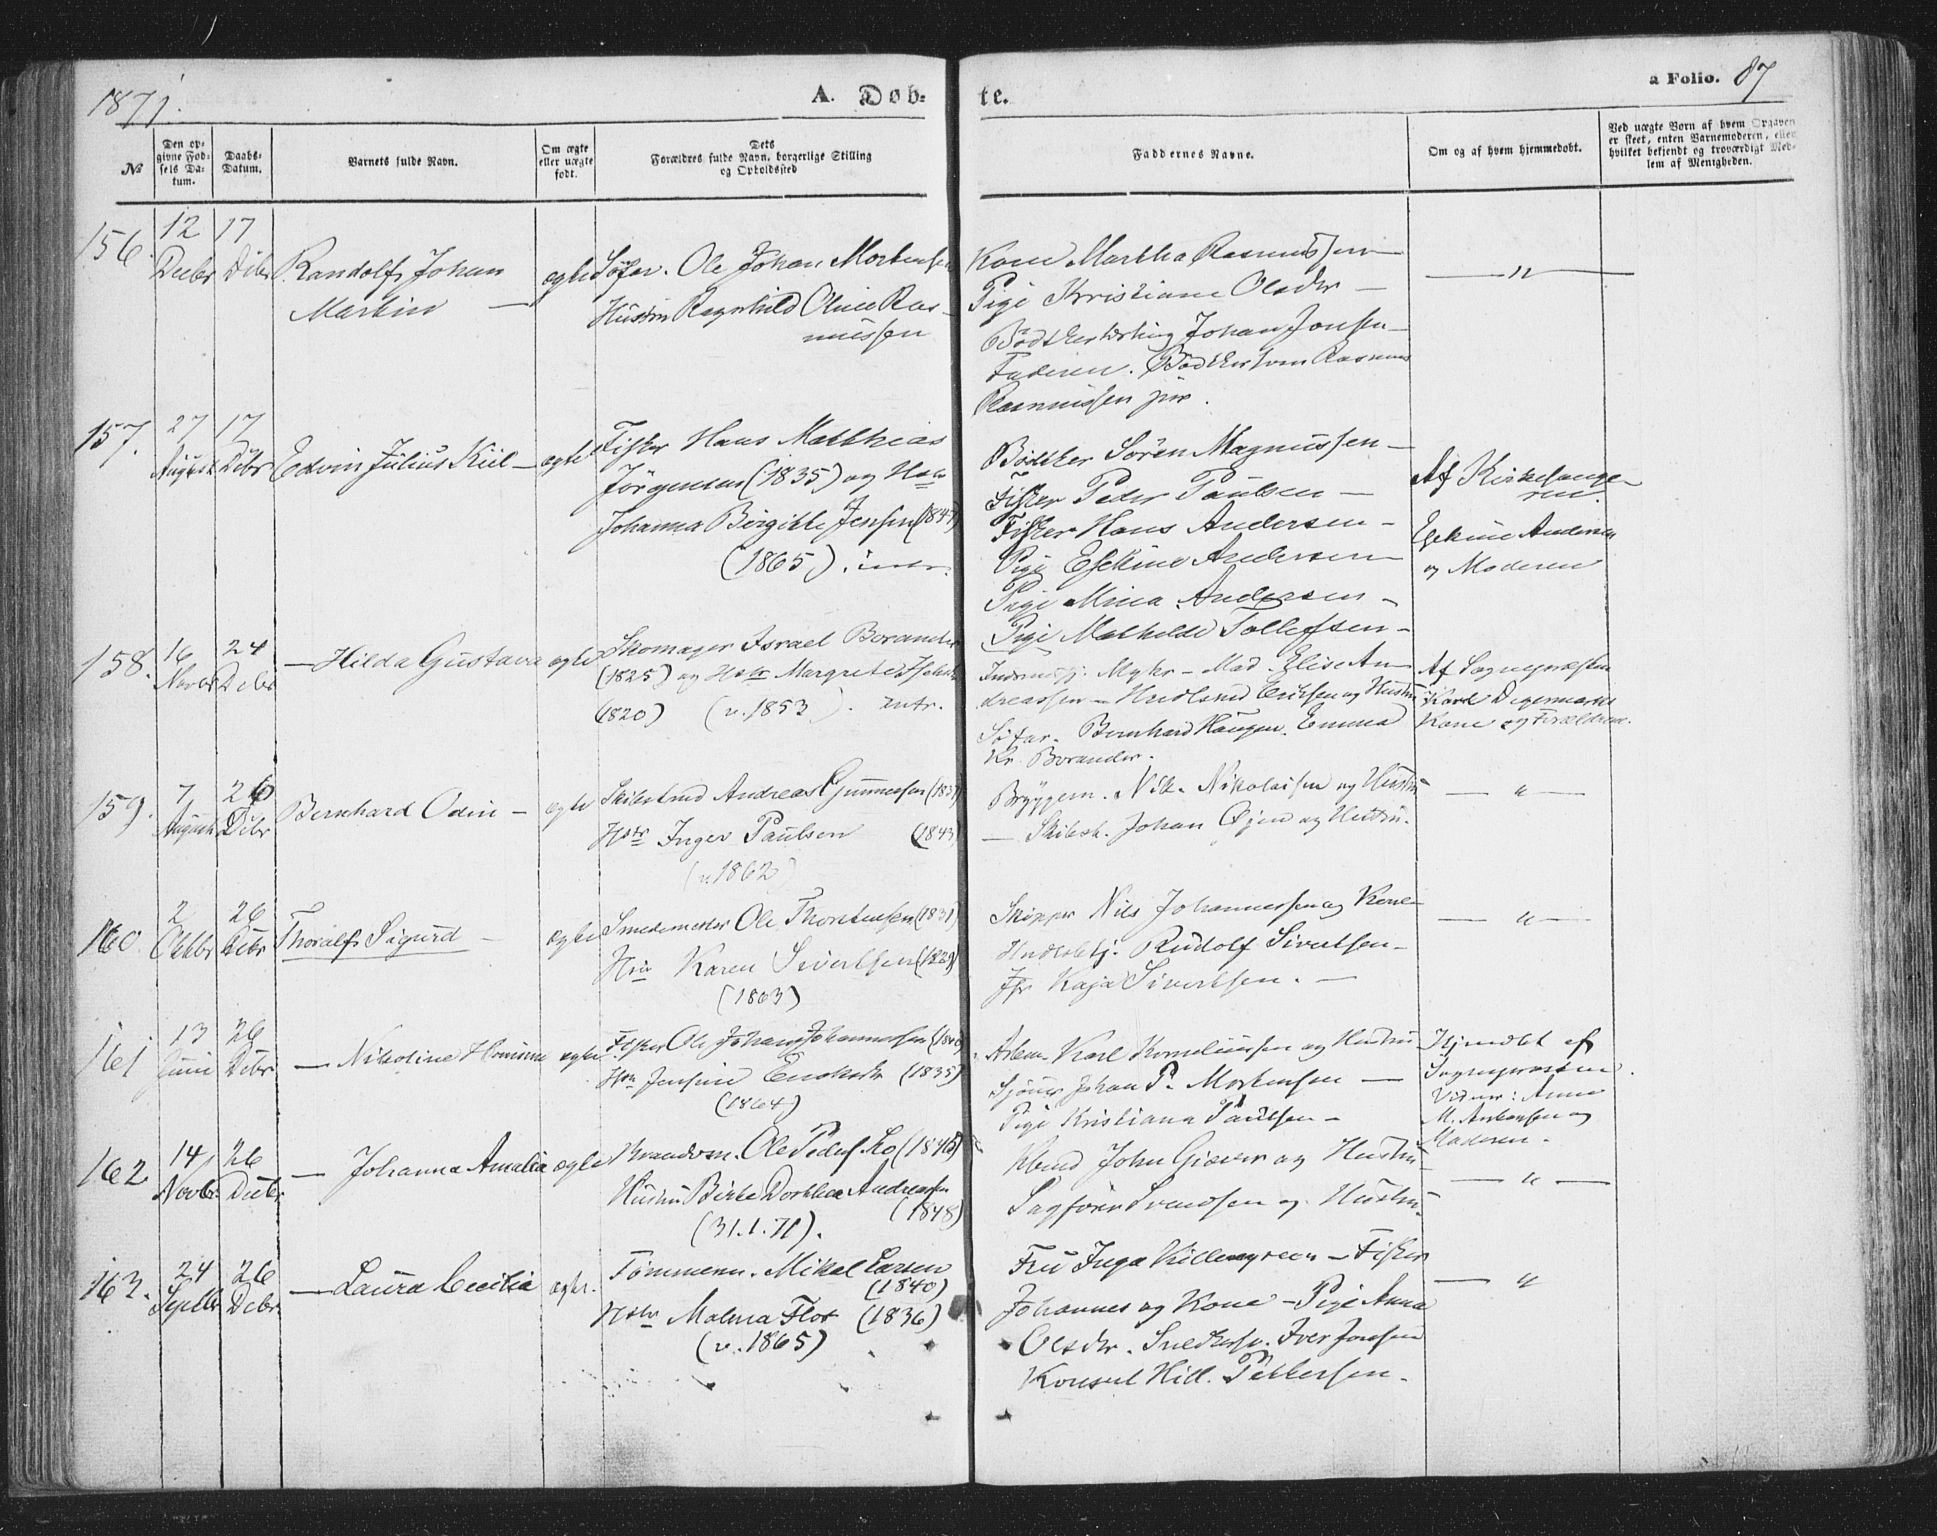 1871.
A. Døb-
te.
a Folio. 87
№
Den op-
givne Fød-
sels Da-
tum.
Daabs-
Datum.
Barnets fulde Navn.
Om ægte
eller uægte
født.
Dets
Forældres fulde Navn, borgerlige Stilling
og Opholdssted
Faddernes Navne.
Om og af hvem hjemmedøbt.
Ved uægte Børn af hvem Opgaven
er skeet, enten Barnemoderen, eller
hvilket bekjendt og troværdigt Med-
lem af Menigheden.
156. 12 Decbr 17 Dcbr
Randolf Johan
Martin —
ægte
Søfar. Ole Johan Mortensen
Hustru Ragnhild Oline Ras-
mussen
Kone Martha Rasmussen
Pige Kristiane Olsdtr —
Johan Jonsen —
Faderen. Rasmus
Rasmussen jun.
— " —
157. 27 August 17 Dcbr
Edvin Julius Kiil —
ægte
Fisker Hans Matthias
Jørgensen (1835) og Hstr
Johanna Birgitte Jensen (1847)
(1865). intr.
Bødker Søren Magnussen —
Fisker Peder Paulsen —
Fisker Hans Andersen —
Pige Eskine Andersen
Pige Mina Andersen —
Pige Mathilde Tollefsen —
Af Kirkesange-
ren.
Andersen
og Moderen
158. 16 Novbr 24 Dcbr
— Hilda Gustava
ægte
Skomager Israel Borander
(1825) og Hstr Margrete
(1820) (v. 1853). intr.
Mad. Elise An-
dreassen — Eriksen og Hustru
Søfar. Bernhard Haugen. Emma
Kr. Borander.
Af Sognepræsten
Karl Degermarks
Kone og Forældrene.
159. 7 August 26 Dcbr
Bernhard Odin —
ægte
Andreas Gunnersen (1837)
Hstr Inger Paulsen (1843)
(v. 1862)
Nik. Nikolaisen og Hustru
— Skibsk. Johan Øjen og Hustru.
— " —
160. 2 Oktbr 26 Dcbr
Thoralf Sigurd —
ægte
Smedemester Ole Thorstensen (1831)
Karen Sivertsen (1829)
(1863)
Skipper Nils Johannessen og Kone —
Rudolf Sivertsen —
Jfr Kaja Sivertsen. —
— " —
161 13 Juni 26 Dcbr
— Nikoline
ægte
Fisker Ole Johan Johannessen
Hstr Jensine (1835)
(1864)
Karl Korneliussen og Hustru
Johan P. Mortensen —
Pige Kristiana Paulsen —
Hjmdbt af
Sognepræsten.
Vidner: Anne
M. og
Moderen.
162 14 Novbr 26 Decbr
— Johanna Amalia
ægte
Ole Peder Lo
Hustru Birte Dorthea Andreassen
(1848)
(31.1.71).
John Giæver og Hustru
Sagfører Svendsen og Hustru.
— " —
163. 24 Septbr 26 Dcbr
— Laura Cecilia
ægte.
Tømmerm. Mikal Larsen
(1840)
Hstr Malena Flor (1836)
(v. 1865)
Fru Inga Killengreen — Fisker
Johannes og Kone — Pige Anna
Olsdtr. Iver Jonsen
Konsul Hill. Pettersen.
— "